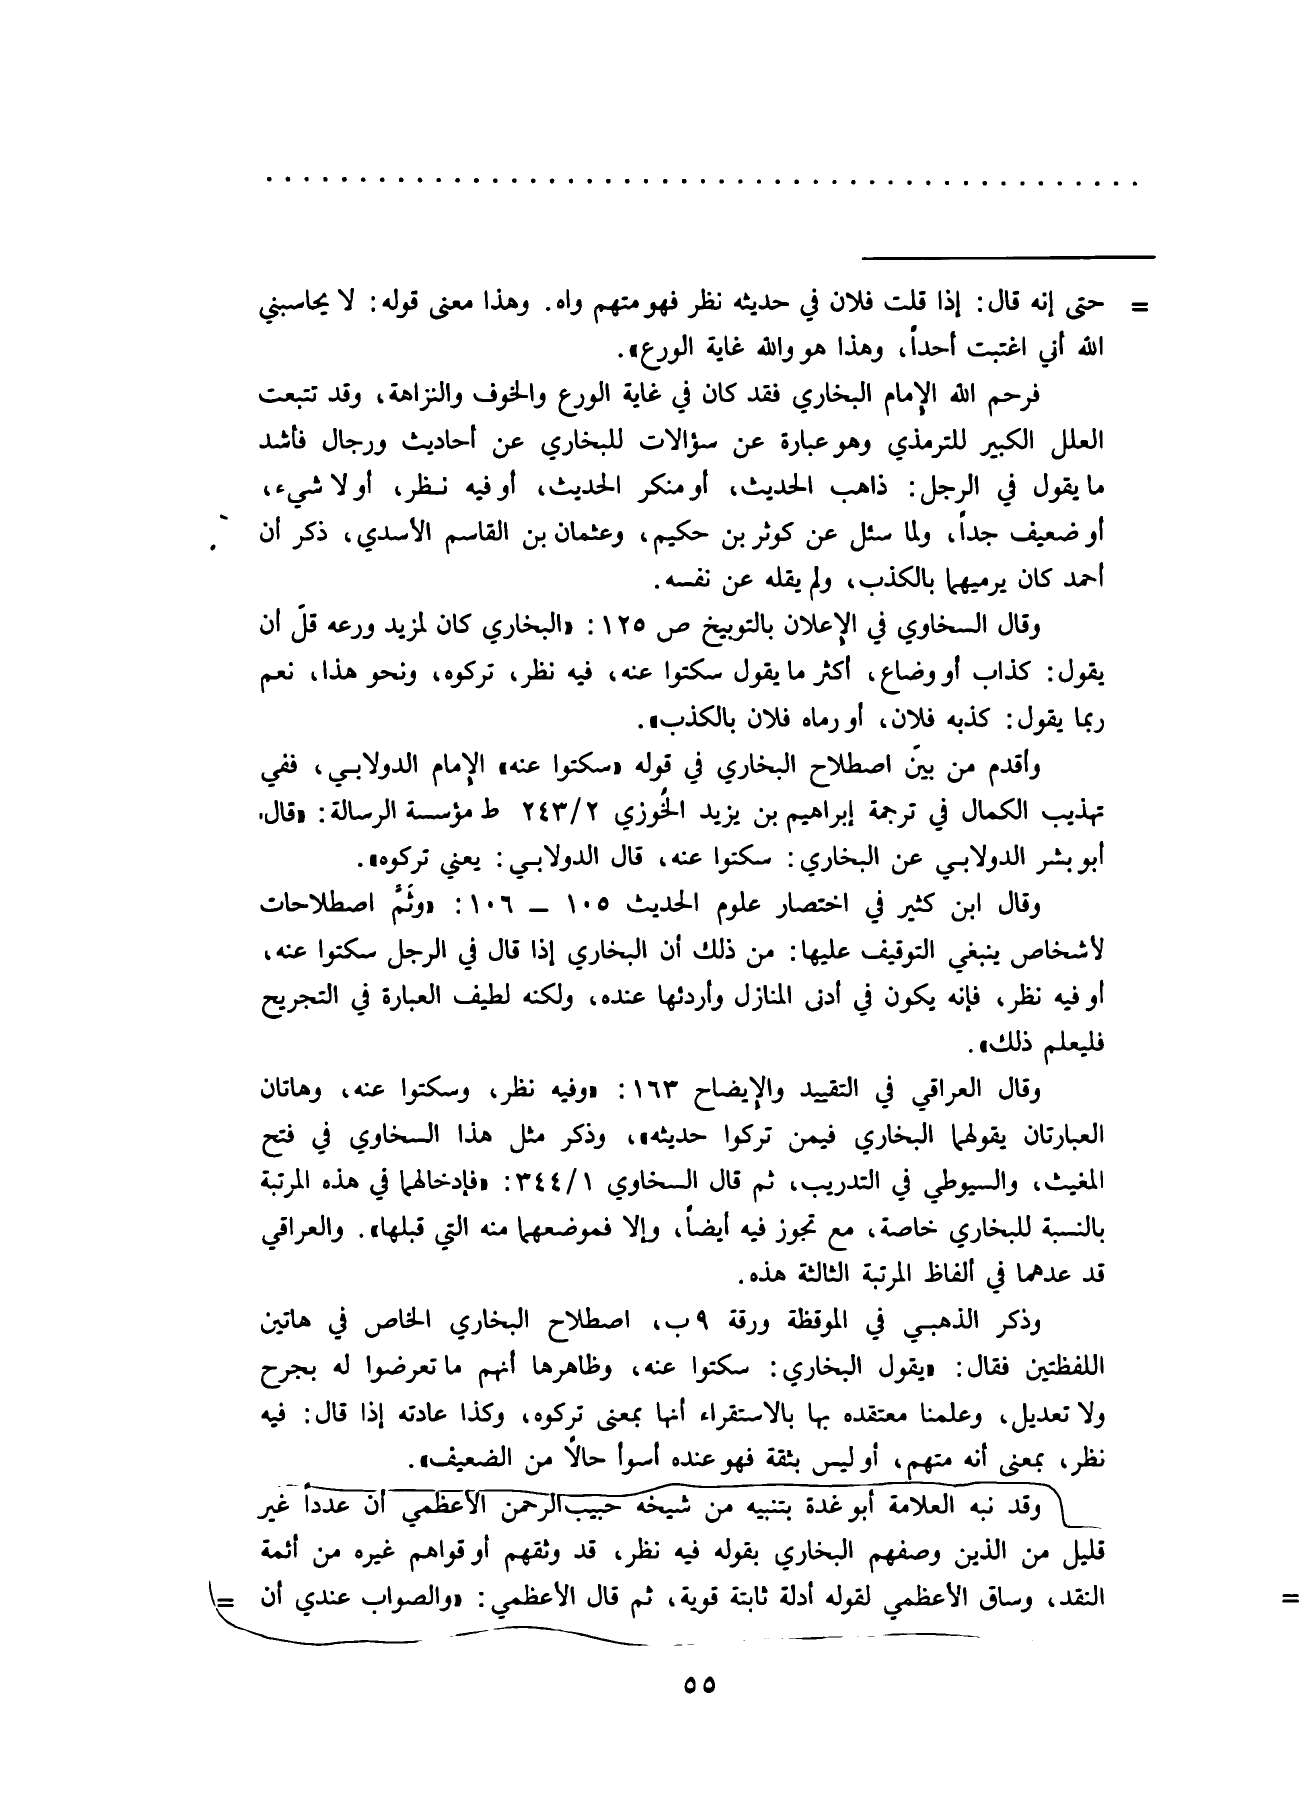 . . . . . . . . . . . . . . . . . . . . . . . . . . . . . . . . . . . . . . .
= حتى إنه قال: إذا قلت فلان في حديثه نظر فهو متهم واه. وهذا معنى قوله: لا يحاسبني
الله أني اغتبت أحداً، وهذا هو والله غاية الورع».
فرحم الله الإمام البخاري فقد كان في غاية الورع والخوف والنزاهة، وقد تتبعت
العلل الكبير للترمذي وهو عبارة عن سؤالات للبخاري عن أحاديث ورجال فأشد
ما يقول في الرجل: ذاهب الحديث، أو منكر الحديث، أو فيه نظر، أو لا شيء،
أو ضعيف جداً، ولما سئل عن كوثر بن حكيم، وعثمان بن القاسم الأسدي، ذكر أن
أحمد كان يرميهما بالكذب، ولم يقله عن نفسه.
وقال السخاوي في الإعلان بالتوبيخ ص ١٢٥: «البخاري كان لمزيد ورعه قلّ أن
يقول: كذاب أو وضاع، أكثر ما يقول سكتوا عنه، فيه نظر، تركوه، ونحو هذا، نعم
ربما يقول: كذبه فلان، أو رماه فلان بالكذب».
وأقدم من بينّ اصطلاح البخاري في قوله «سكتوا عنه» الإمام الدولابي، ففي
تهذيب الكمال في ترجمة إبراهيم بن يزيد الخُوزي ٢٤٣/٢ ط مؤسسة الرسالة: «قال
أبو بشر الدولابي عن البخاري: سكتوا عنه، قال الدولابي: يعني تركوه».
وقال ابن كثير في اختصار علوم الحديث ١٠٥ ــ ١٠٦: «وثَمَّ اصطلاحات
لأشخاص ينبغي التوقيف عليها: من ذلك أن البخاري إذا قال في الرجل سكتوا عنه،
أو فيه نظر، فإنه يكون في أدنى المنازل وأردئها عنده، ولكنه لطيف العبارة في التجريح
فليعلم ذلك».
وقال العراقي في التقييد والإيضاح ١٦٣: «وفيه نظر، وسكتوا عنه، وهاتان
العبارتان يقولهما البخاري فيمن تركوا حديثه»، وذكر مثل هذا السخاوي في فتح
المغيث، والسيوطي في التدريب، ثم قال السخاوي ٣٤٤/١: «فإدخالهما في هذه المرتبة
بالنسبة للبخاري خاصة، مع تجوز فيه أيضاً، وإلا فموضعهما منه التي قبلها». والعراقي
قد عدهما في ألفاظ المرتبة الثالثة هذه.
وذكر الذهبي في الموقظة ورقة ٩ ب، اصطلاح البخاري الخاص في هاتين
اللفظتين فقال: «يقول البخاري: سكتوا عنه، وظاهرها أنهم ما تعرضوا له بجرح
ولا تعديل، وعلمنا معتقده بها بالاستقراء أنها بمعنى تركوه، وكذا عادته إذا قال: فيه
نظر، بمعنى أنه متهم، أو ليس بثقة فهو عنده أسوأ حالاً من الضعيف».
وقد نبه العلامة أبو غدة بتنبيه من شيخه حبيب الرحمن الأعظمي أن عدداً غير
قليل من الذين وصفهم البخاري بقوله فيه نظر، قد وثقهم أو قواهم غيره من أئمة
النقد، وساق الأعظمي لقوله أدلة ثابتة قوية، ثم قال الأعظمي: «والصواب عندي أن =
=
٥٥